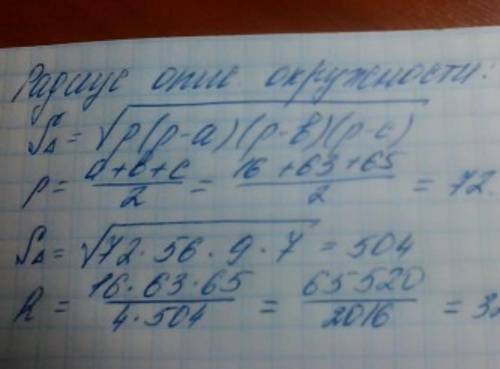 Радиус опис окружности:
S△ = √p(p-a)(p-b)(p-c)
p = a+b+c/2 = 16+63+65/2 = 72.
S△ = √72·56·9·7 = 504
R = 16·63·65/4·504 = 65520/2016 = 32